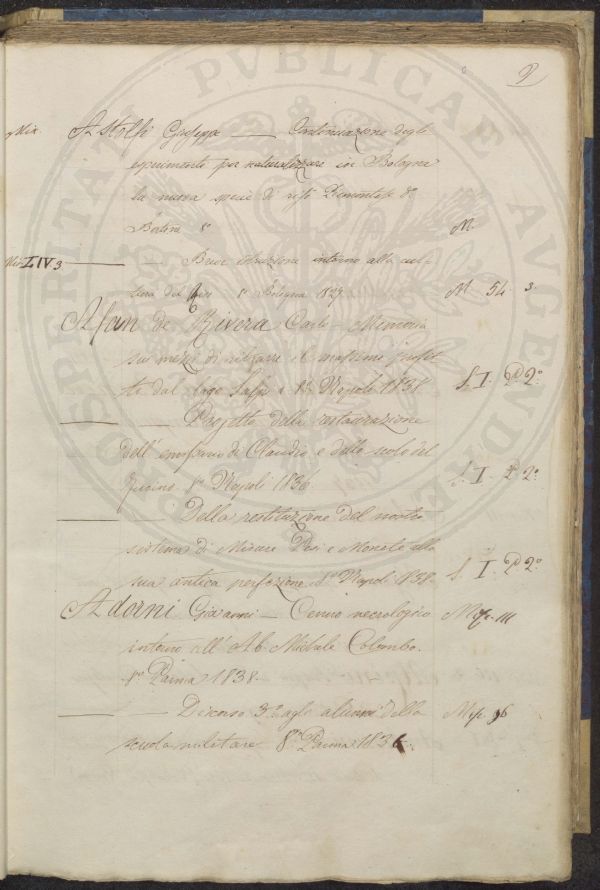 2
Mix. Astolfi Giuseppe — Continuazione degli
esperimenti per naturalizzare in Bologna
la nuova specie di riso Piemontese di
8° M.
Mix LIV 3 — — Breve istruzione intorno alla cul-
tura del riso 8° Bologna 1829 M 54 3.
Afan de Rivera Carlo — Memoria
sui mezzi di ritrarre il massimo profit-
to dal lago Salpi 8° Napoli 1838. S. I. P. 2°.
— — Progetto della restaurazione
dell' emissario di Claudio e dello scolo del
Fucino 8° Napoli 1836 S. I. P. 2°.
— — Della restituzione del nostro
sistema di Misure Pesi e Monete alla
sua antica perfezione 8° Napoli 1838. S. I. P. 2°.
Adorni Giovanni — Cenno necrologico Misc. III
intorno all' Ab. Michele Colombo.
8° Parma 1838.
— — Discorso 3° agli alunni della Misc. 96
scuola militare 8° Parma 1836.
PROSPERITATI PVBLICAE AVGENDAE